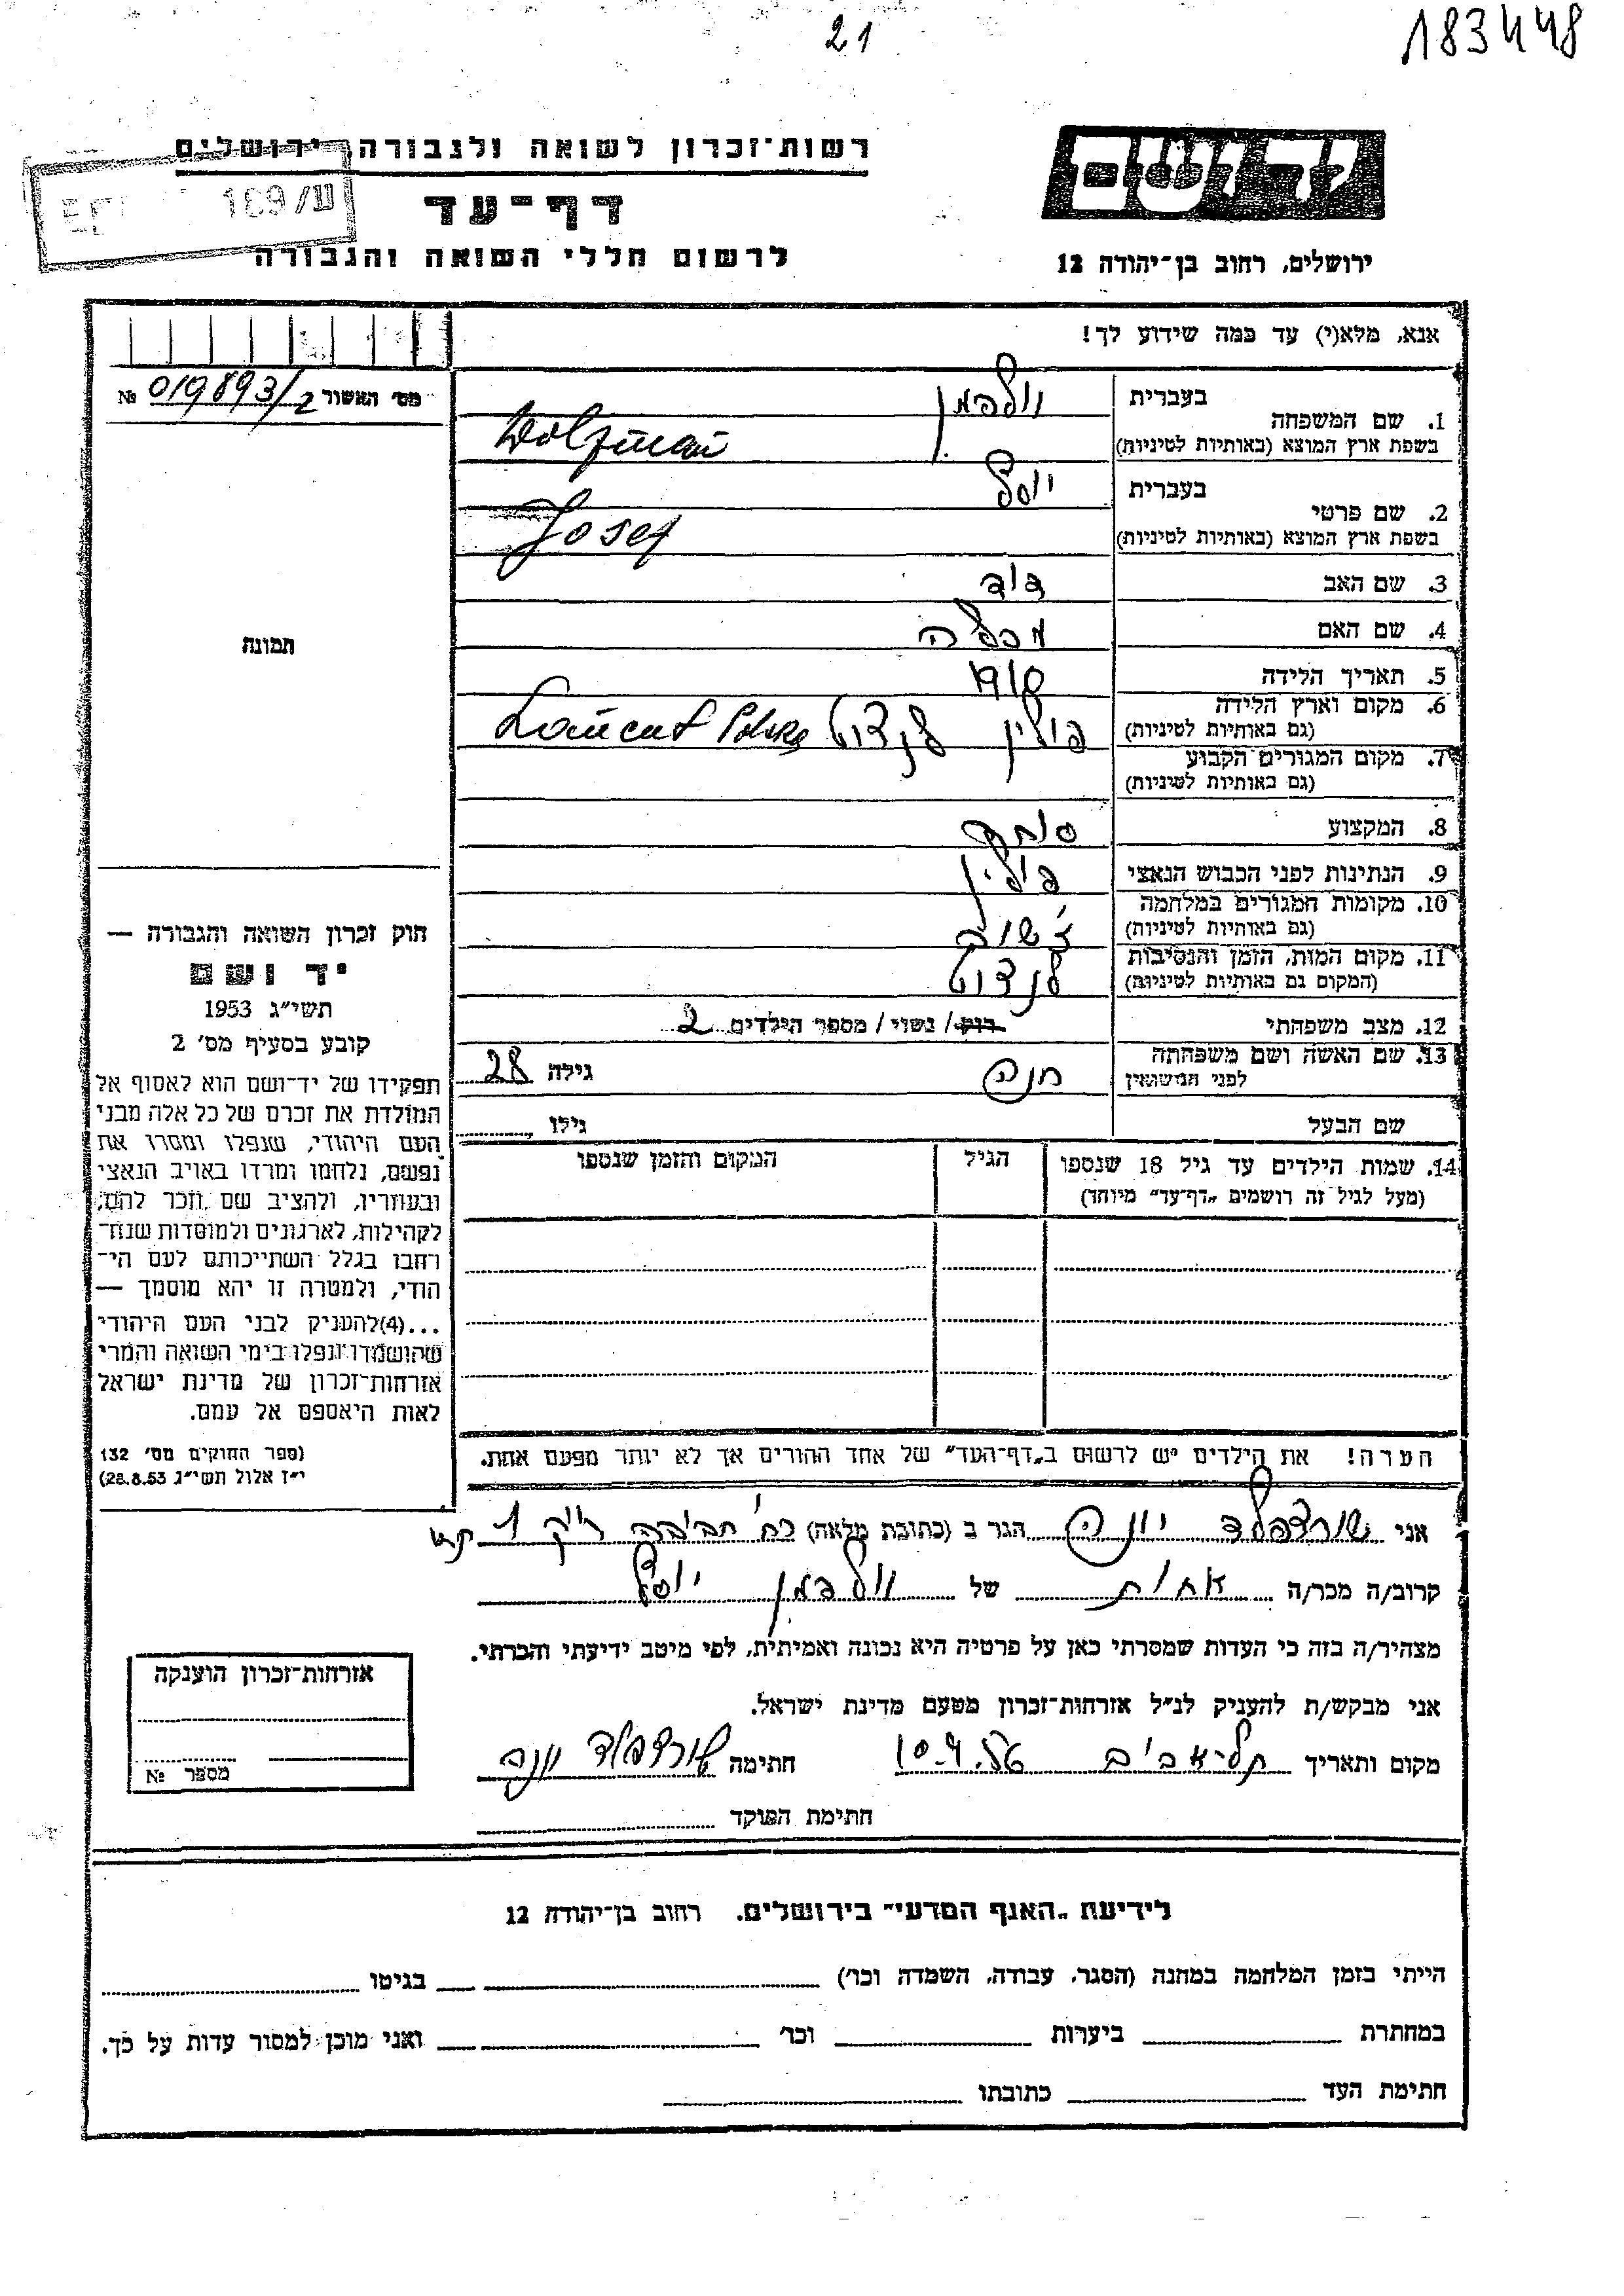 21
183448
רשות־זכרון לשואה ולגבורה, ירושלים
דף־עד
לרשום חללי השואה והגבורה
ירושלים, רחוב בן־יהודה 12
169/ש
אנא, מלא(י) עד כמה שידוע לך!
מס׳ האשור 019893/2 №
1. שם המשפחה
בעברית
בשפת ארץ המוצא (באותיות לטיניות)
Wolfman
2. שם פרטי
בעברית יוסף
בשפת ארץ המוצא (באותיות לטיניות) Josef
3. שם האב דוד
4. שם האם
5. תאריך הלידה
6. מקום וארץ הלידה
(גם באותיות לטיניות) פולין לנדוט Lancut Polska
7. מקום המגורים הקבוע
(גם באותיות לטיניות)
8. המקצוע סוחר
9. הנתינות לפני הכבוש הנאצי פולין
10. מקומות המגורים במלחמה
(גם באותיות לטיניות)
11. מקום המות, הזמן והנסיבות
(המקום גם באותיות לטיניות) לנדוט
12. מצב משפחתי רוק/ נשוי / מספר הילדים 2
13. שם האשה ושם משפחתה
לפני הנשואין חנה גילה 28
שם הבעל גילו
14. שמות הילדים עד גיל 18 שנספו
(מעל לגיל זה רושמים „דף־עד״ מיוחד)
הגיל
המקום והזמן שנספו
הערה! את הילדים יש לרשום ב„דף־העד״ של אחד ההורים אך לא יותר מפעם אחת.
תמונה
חוק זכרון השואה והגבורה —
יד ושם
תשי״ג 1953
קובע בסעיף מס׳ 2
תפקידו של יד־ושם הוא לאסוף אל
המולדת את זכרם של כל אלה מבני
העם היהודי, שנפלו ומסרו את
נפשם, נלחמו ומרדו באויב הנאצי
ובעוזריו, ולהציב שם וזכר להם,
לקהילות, לארגונים ולמוסדות שנח־
רבו בגלל השתייכותם לעם הי־
הודי, ולמטרה זו יהא מוסמך —
...(4)להעניק לבני העם היהודי
שהושמדו ונפלו בימי השואה והמרי
אזרחות־זכרון של מדינת ישראל
לאות היאספם אל עמם.
(ספר החוקים מס׳ 132
י״ז אלול תשי״ג 28.8.53)
אני שורדפלד יונה הגר ב (כתובת מלאה) רח׳ חביבה רייק 1
קרוב/ה מכר/ה אחות של יוסף
מצהיר/ה בזה כי העדות שמסרתי כאן על פרטיה היא נכונה ואמיתית, לפי מיטב ידיעתי והכרתי.
אני מבקש/ת להעניק לנ״ל אזרחות־זכרון מטעם מדינת ישראל.
מקום ותאריך תל־אביב 10.4.56 חתימה שורדפלד יונה
חתימת הפוקד
אזרחות־זכרון הוענקה
מספר №
לידיעת „האגף המדעי״ בירושלים. רחוב בן־יהודה 12
הייתי בזמן המלחמה במחנה (הסגר, עבודה, השמדה וכו׳) בגיטו
במחתרת ביערות וכו׳ ואני מוכן למסור עדות על כך.
חתימת העד כתובתו